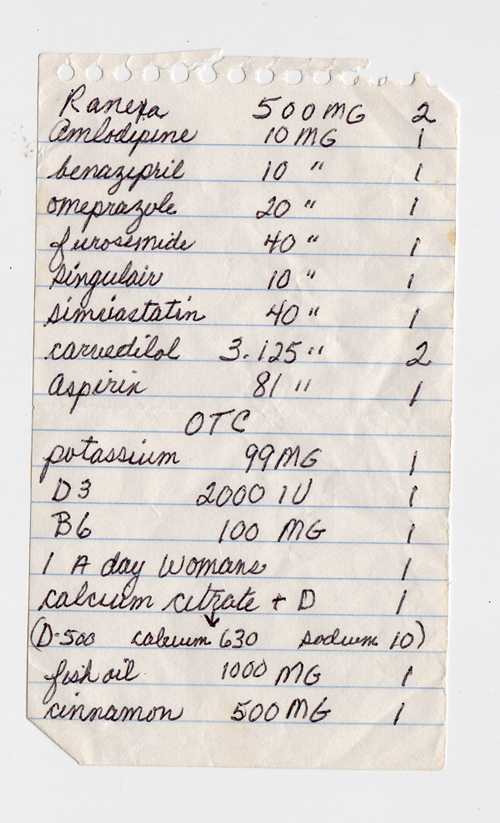 Ranexa 500 MG 2
Amlodipine 10 MG 1
benazipril 10 " 1
omeprazole 20 " 1
furosemide 40 " 1
Singulair 10 " 1
simvastatin 40 " 1
carvedilol 3.125 " 2
aspirin 81 " 1
OTC
potassium 99 MG 1
D3 2000 IU 1
B6 100 MG 1
1 A day Womans 1
calcium citrate + D 1
(D-500 calcium 630 sodium 10)
fish oil 1000 MG 1
cinnamon 500 MG 1